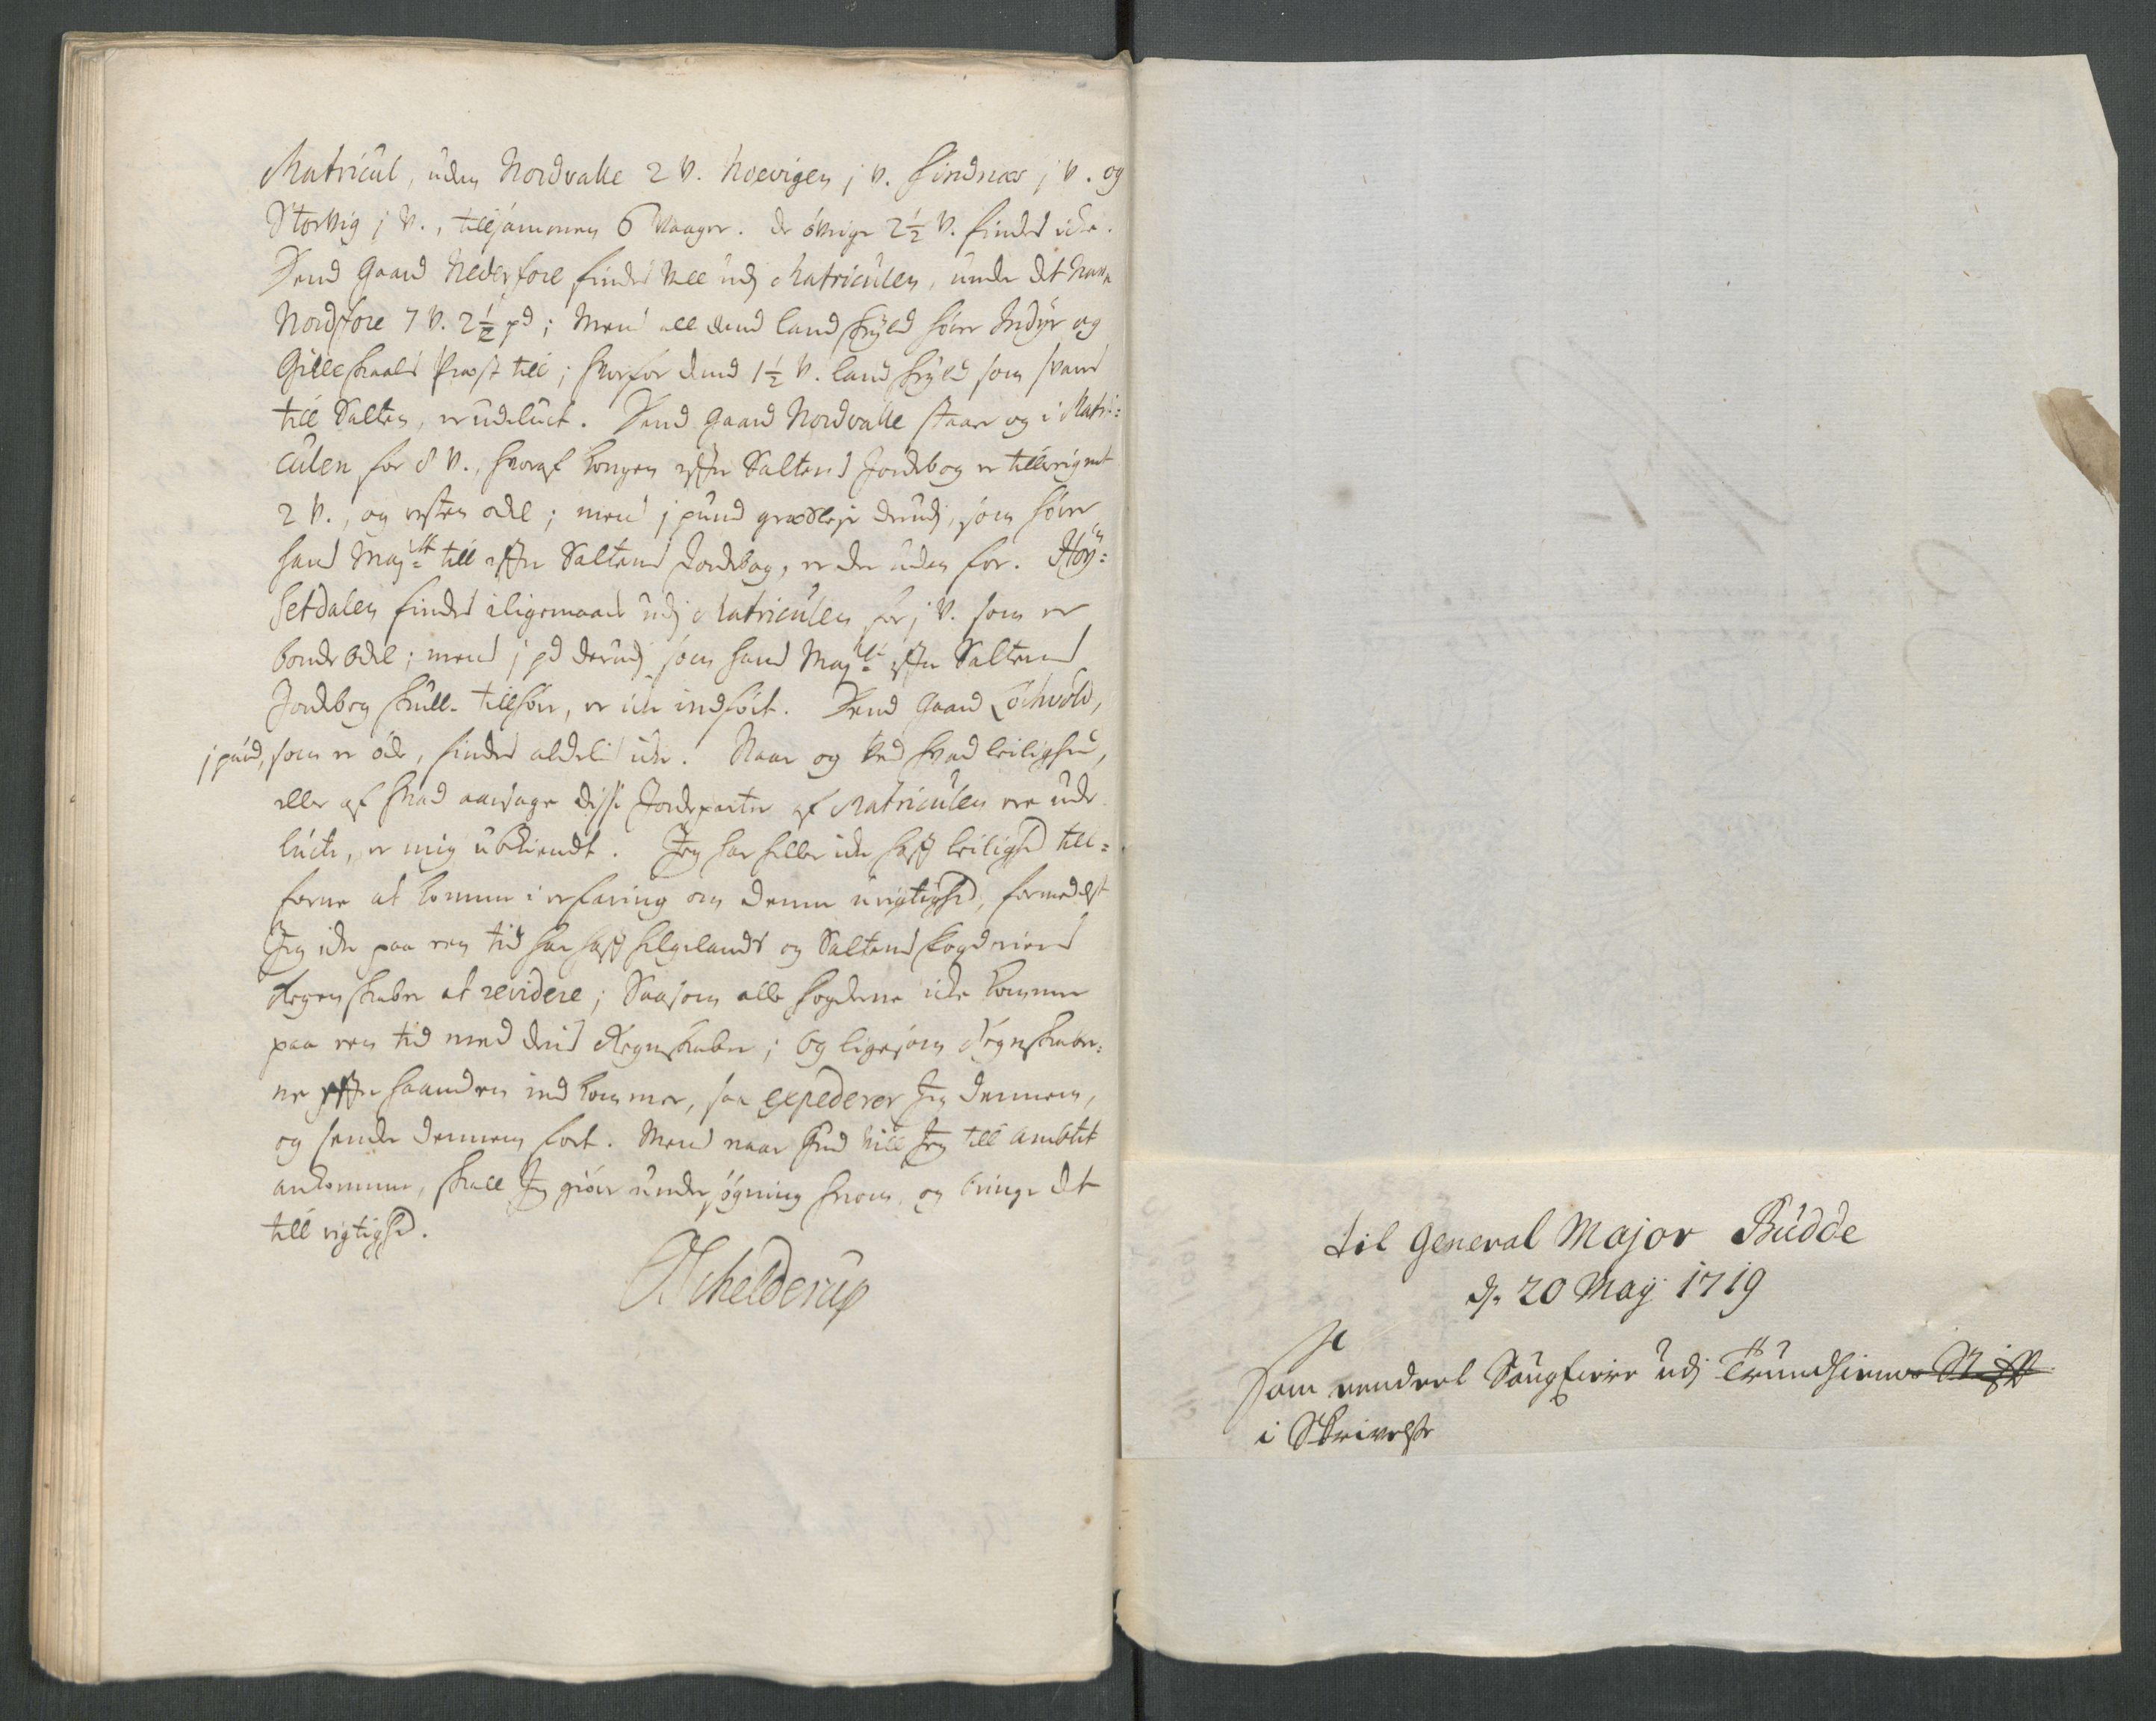 Matricul, uden Nordvalle 2 V. Noevigen j V. Sindnæs j V. og
Storvig j V., tillsammen 6 Waager. De öfrige 2½ V. findes icke.
Dend Gaard Nederfore findes vell udj Matriculen, under det Nafn
Nordfore 7 V. 2½ pd; Mens all dend landskyld hörer Indyr og
Gilleskaals Præst till; hvorfor dend 1½ V. landskyld som svares
till Salten, er udeluct. Dend Gaard Nordvalle staar og i Matri=
culen for 8 V., hvoraf Kongen efter Saltens Jordebog er tilleignet
2 V., og resten odel; mens j pund græsleje derudj, som hörer
hans Maj:tt till efter Saltens Jordebog, er der uden for. Höy=
setdalen findes iligemaade udj Matriculen for j V. som er
bonde Odel; mens j pd derudj som hans Maj:tt efter Saltens
Jordebog skulle tillhöre, er icke indfört. Dend Gaard Lochvold,
j pund, som er öde, findes aldelis icke. Naar og ved hvad leilighed,
eller af hvad aarsage disse Jordeparter af Matriculen ere ude
luct, er mig ubekiendt. Jeg har heller icke haft leilighed till=
forne at komme i erfaring om denne urigtighed, formedelst
Jeg icke paa een tid har haft Helgelands og Saltens Fogderiers
Regenskaber at revidere; Saasom alle Fogderne icke kommer
paa een tid med deris Regnskaber; og ligesom Regnskaber=
ne efter haanden ind kommer, saa expederer Jeg dennem,
og sender dennem fort. Mens naar Gud vill Jeg till Ambtet
ankommer, skall Jeg giöre undersögning herom, og bringe det
till rigtighed.
Schelderup
til General Major Büdde
d. 20 Maij 1719
Som eenderl Sougfierre udj Trundhiems Stift
i Skrivelse